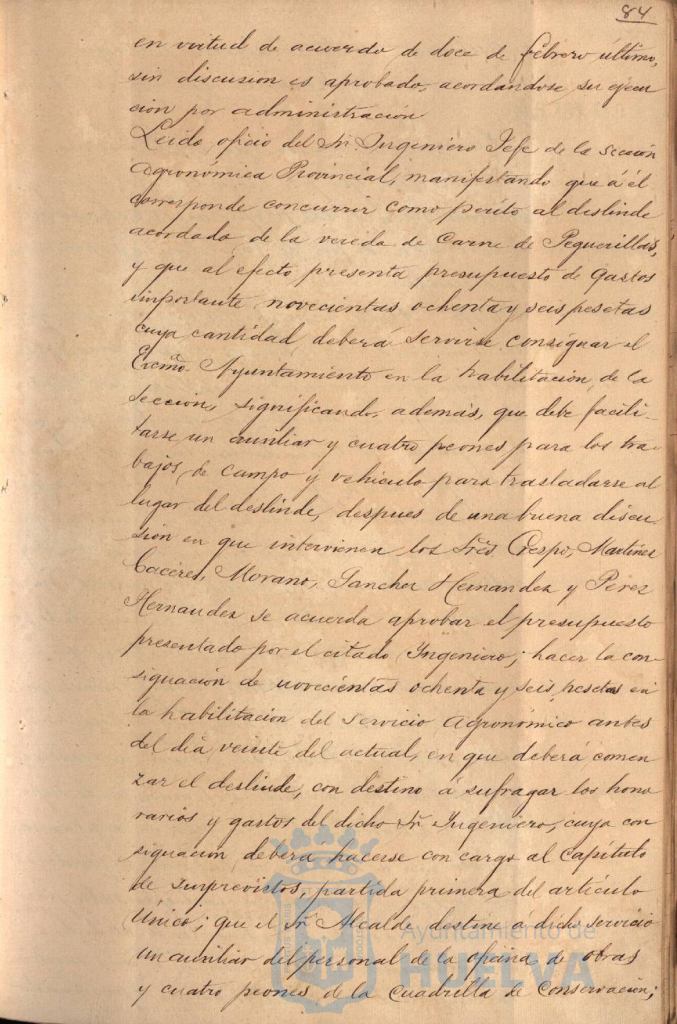 84
en virtud de acuerdo de doce de febrero último,
sin discusion es aprobado, acordandose su ejecu
cion por administración
Leido oficio del Sr. Ingeniero Jefe de la Sección
Agronómica Provincial, manifestando que á él
corresponde concurrir como périto al deslinde
acordado de la vereda de Carne de Peguerillas,
y que al efecto presenta presupuesto de gastos
importante novecientas ochenta y seis pesetas
cuya cantidad deberá servirse consignar el
Excmo. Ayuntamiento en la habilitación de la
Sección, significando, además, que debe facili-
tarse un auxiliar y cuatro peones para los tra-
bajos de campo y vehiculo para trasladarse al
lugar del deslinde, despues de una buena discu-
sion en que intervienen los Sres. Crespo, Martinez
Caceres, Morano, Sanchez Hernandez y Perez
Hernandez se acuerda aprobar el presupuesto
presentado por el citado Ingeniero; hacer la con-
signación de novecientas ochenta y seis pesetas en
la habilitacion del Servicio Agronómico antes
del dia veinte del actual, en que deberá comen
zar el deslinde, con destino á sufragar los hono
rarios y gastos del dicho Sr. Ingeniero, cuya con
signacion deberá hacerse con cargo al Capítulo
de Imprevistos, partida primera del artículo
Único; que el Sr. Alcalde destine a dicho servicio
un auxiliar del personal de la oficina de obras
y cuatro peones de la Cuadrilla de Conservacion;
Ayuntamiento de
HUELVA